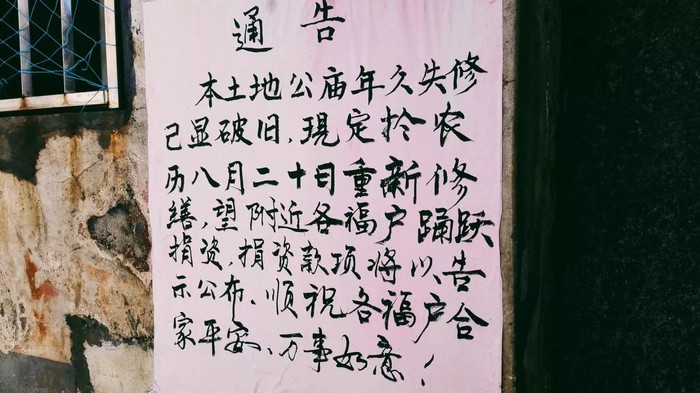 通告
本土地公庙年久失修
已显破旧,現定於农
历八月二十日重新修
缮,望附近各福户踊跃
捐资,捐资款项将以告
示公布、顺祝各福户合
家平安、万事如意!